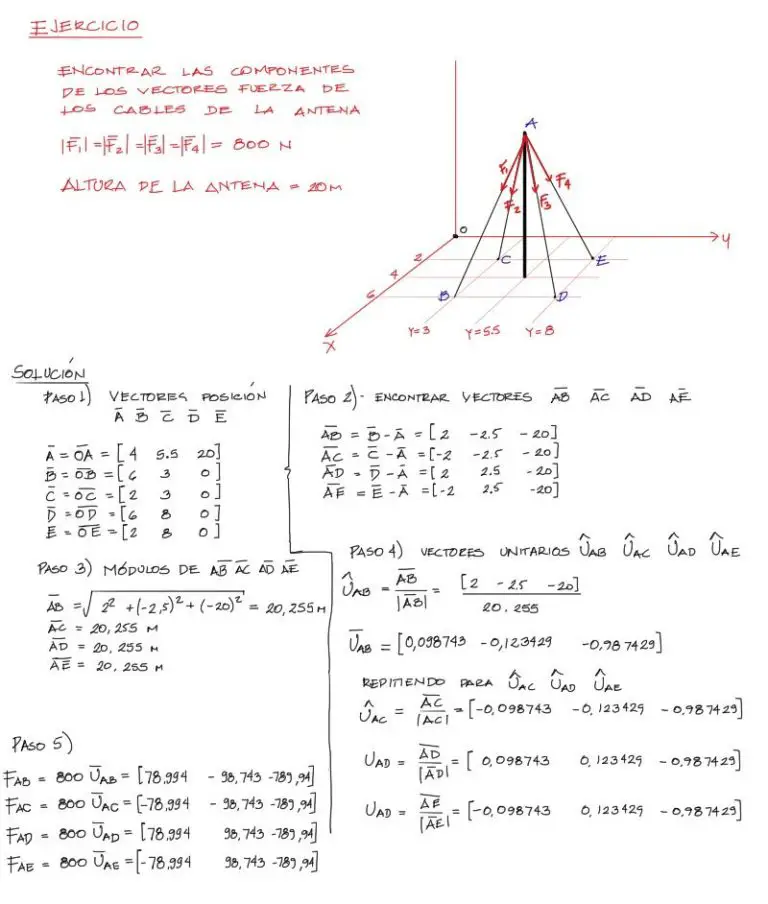 EJERCICIO
ENCONTRAR LAS COMPONENTES
DE LOS VECTORES FUERZA DE
LOS CABLES DE LA ANTENA
|F̄₁| = |F̄₂| = |F̄₃| = |F̄₄| = 800 N
ALTURA DE LA ANTENA = 20 M
A
F₁
F₂
F₃
F₄
O
Y
2
C
E
4
6
B
D
X
Y=3
Y=5.5
Y=8
SOLUCIÓN
PASO 1) VECTORES POSICIÓN
Ā B̄ C̄ D̄ Ē
Ā = OA = [4 5.5 20]
B̄ = OB = [6 3 0]
C̄ = OC = [2 3 0]
D̄ = OD = [6 8 0]
E = OE = [2 8 0]
PASO 2)- ENCONTRAR VECTORES AB AC AD AE
AB = B̄ - Ā = [2 -2.5 -20]
AC = C̄ - Ā = [-2 -2.5 -20]
AD = D̄ - Ā = [2 2.5 -20]
AE = Ē - Ā = [-2 2.5 -20]
PASO 3) MÓDULOS DE AB AC AD AE
AB = √2² + (-2,5)² + (-20)² = 20,255 M
AC = 20,255 M
AD = 20,255 M
AE = 20.255 M
PASO 4) VECTORES UNITARIOS ÛAB ÛAC ÛAD ÛAE
ÛAB = AB / |AB| = [2 -2.5 -20] / 20.255
ŪAB = [0,098743 -0,123429 -0,987429]
REPITIENDO PARA ÛAC ÛAD ÛAE
ÛAC = AC / |AC| = [-0,098743 -0,123429 -0,987429]
UAD = AD / |AD| = [0,098743 0,123429 -0,987429]
UAD = AE / |AE| = [-0,098743 0,123429 -0,987429]
PASO 5)
FAB = 800 ŪAB = [78,994 -98,743 -789,94]
FAC = 800 ŪAC = [-78,994 -98,743 -789,94]
FAD = 800 ŪAD = [78,994 98,743 -789,94]
FAE = 800 ŪAE = [-78,994 98,743 -789,94]